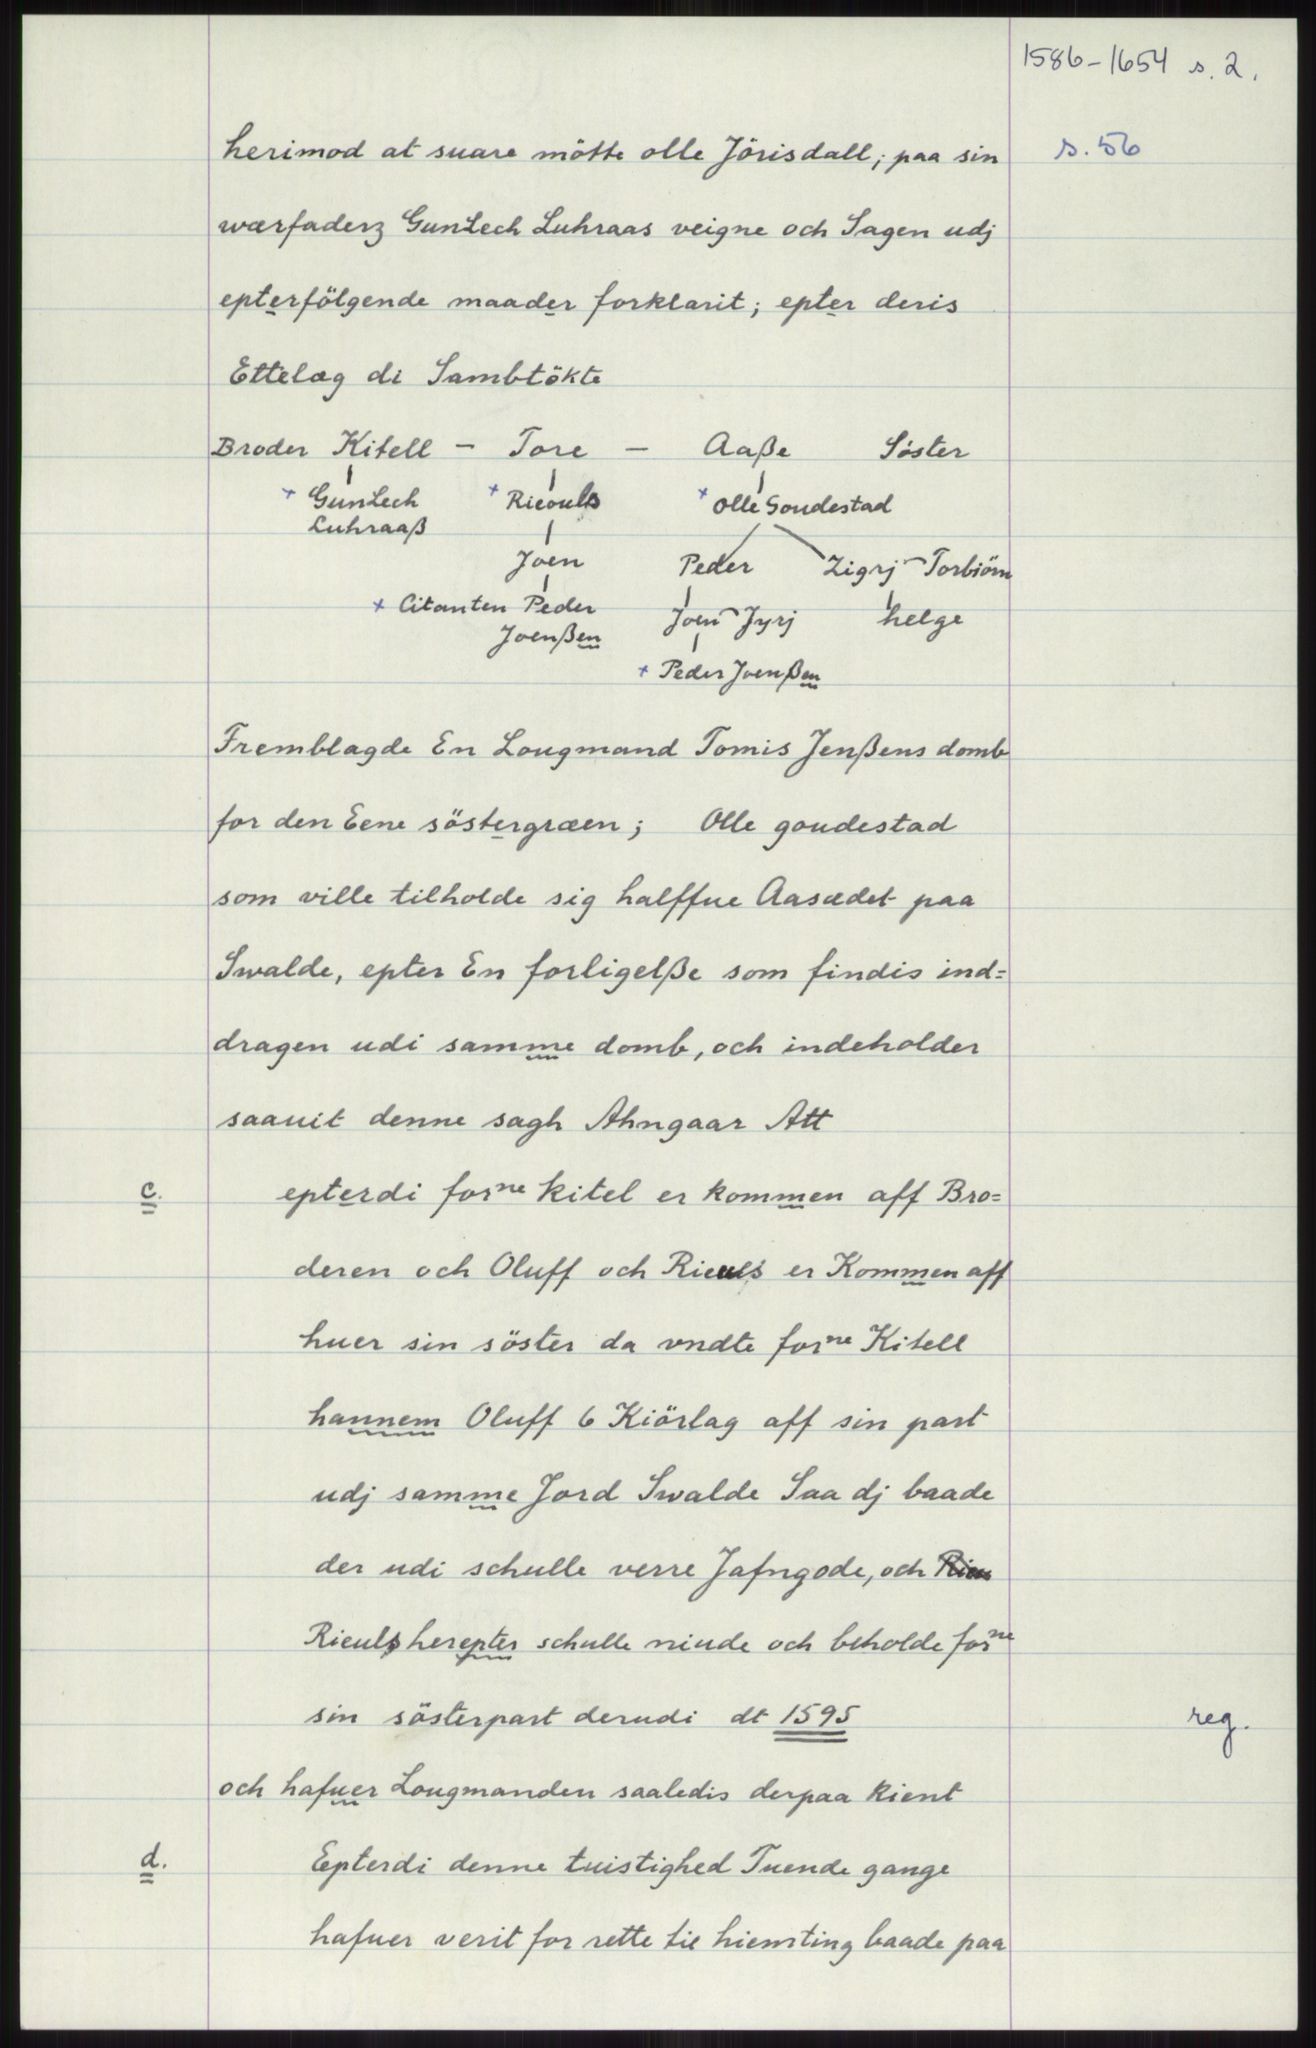 1586-1654 s. 2.
herimod at suare mötte olle Jörisdall; paa sin
s. 56
wærfaderz Gunlech Luhraas veigne och Sagen udj
epterfölgende maader forklarit; epter deris
Ettelæg di Sambtökte
Broder Kitell - Tore - Aaße Söster
+ Gunlech + Rieouls + olle Goudestad
Luhraaß
Joen Peder Zigrj - Torbiörn
+ Citanten Peder Joen - Jyrj helge
Joenßen
+ Peder Joenßen
Fremblagde En Lougmand Tomis Jenßens domb
for den Eene söstergræen; Olle goudestad
som ville tilholde sig halffue Aasædet paa
Swalde, epter En forligelße som findis ind=
dragen udi samme domb, och indeholder
saauit denne sagh Ahngaar Att
c. epterdi forne Kitel er kommen aff Bro=
deren och Oluff och Rieuls er Kommen aff
huer sin söster da vndte forne Kitell
hannem Oluff 6 Kiörlag aff sin part
udj samme Jord Swalde Saa dj baade
der udi schulle verre Jafngode, och Rieu
Rieuls herepter schulle niude och beholde forne
sin sösterpart derudi dt 1595
reg.
och hafuer Lougmanden saaledis derpaa kient
d. Epterdi denne tuistighed Tuende gange
hafuer verit for rette til hiemting baade paa